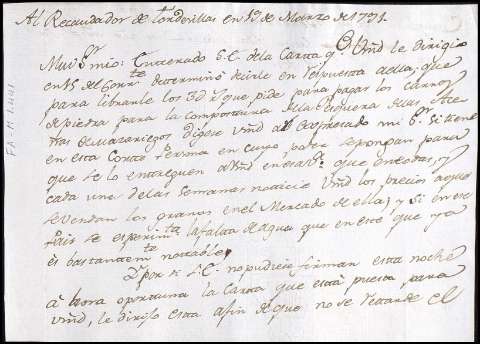 Al Recaudador de Tordesillas en 19 de Marzo de 1791.
Mui Sr. mio: Enterado S.E. de la Carta q. Vmd le dirigio
en 15 del Corrte. determinó decirle en respuesta della, que
para librarle los 3D r. que pide para pagar los carros
de piedra para la compostura de la Pesquera de las Ace
ñas de digese Vmd al expresado mi Sr. si tiene
en esta Corte Persona en cuyo poder se pongan para
que se lo entreguen a Vmd que en todas, y
cada una de las semanas noticie Vmd los precios a que
se vendan los granos en el Mercado de ella; y si en ese
Pais se experimta. la falta de agua que en este que ya
es bastantemte. notable,
Dn. por si S.E. no pudiese firmar esta noche
à hora oportuna la Carta que està puesta para
Vmd, le dirijo esta afin de que no se retarde el
FA-M 1.441